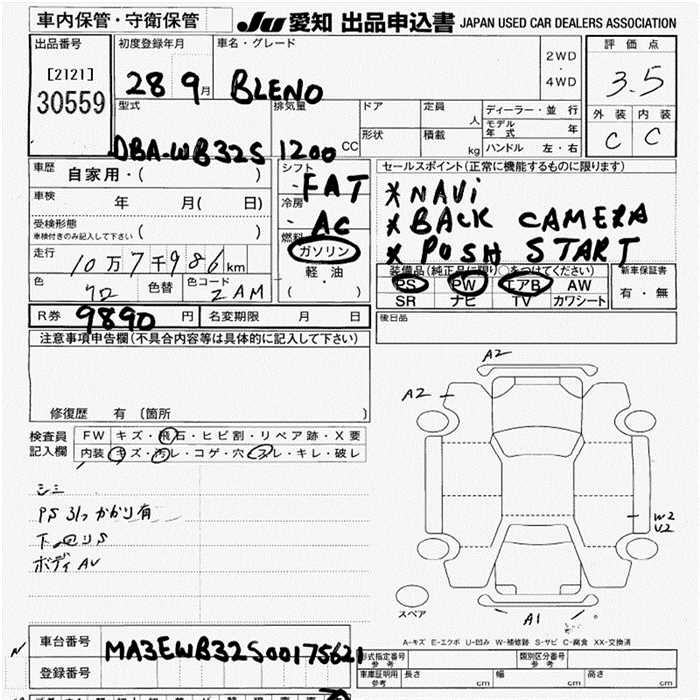 車内保管・守衛保管
JU 愛知 出品申込書 JAPAN USED CAR DEALERS ASSOCIATION
出品番号 初度登録年月 車名・グレード 評価点
[2121]
30559
28 9月 BLENO
2WD
・
4WD
3.5
型式 排気量 ドア 定員 人 ディーラー・並行
モデル年式 年
形状 積載 kg ハンドル 左・右
外装 内装
C C
DBA-WB32S 1200 CC
車歴 自家用・( )
シフト FAT
セールスポイント(正常に機能するものに限ります)
*NAVi
*BACK CAMERA
*PUSH START
車検 年 月( 日)
冷房 AC
受検形態
車検付きのみ記入して下さい ( )
燃料 ガソリン
軽油
( )
走行 10万7千986km
装備品(純正品に限り○をつけてください) 新車保証書
PS PW エアB AW 有・無
SR ナビ TV カワシート
色 色替 色コード ZAM
R券 9890 円 名変期限 月 日
後日品
注意事項申告欄(不具合内容等は具体的に記入して下さい)
修復歴 有 〔箇所 〕
検査員記入欄 FW キズ・飛石・ヒビ割・リペア跡・X要
内装 キズ・汚レ・コゲ・穴・スレ・キレ・破レ
シミ
下回りS
ボディAU
A2
A2
W2
U2
A1
スペア
A-キズ E-エクボ U-凹み W-補修跡 S-サビ C-腐食 XX-交換済
車台番号 MA3EWB32S00175621
登録番号
形式指定番号 参考 類別区分番号 参考
車庫証明用 参考 長さ cm 幅 cm 高さ cm